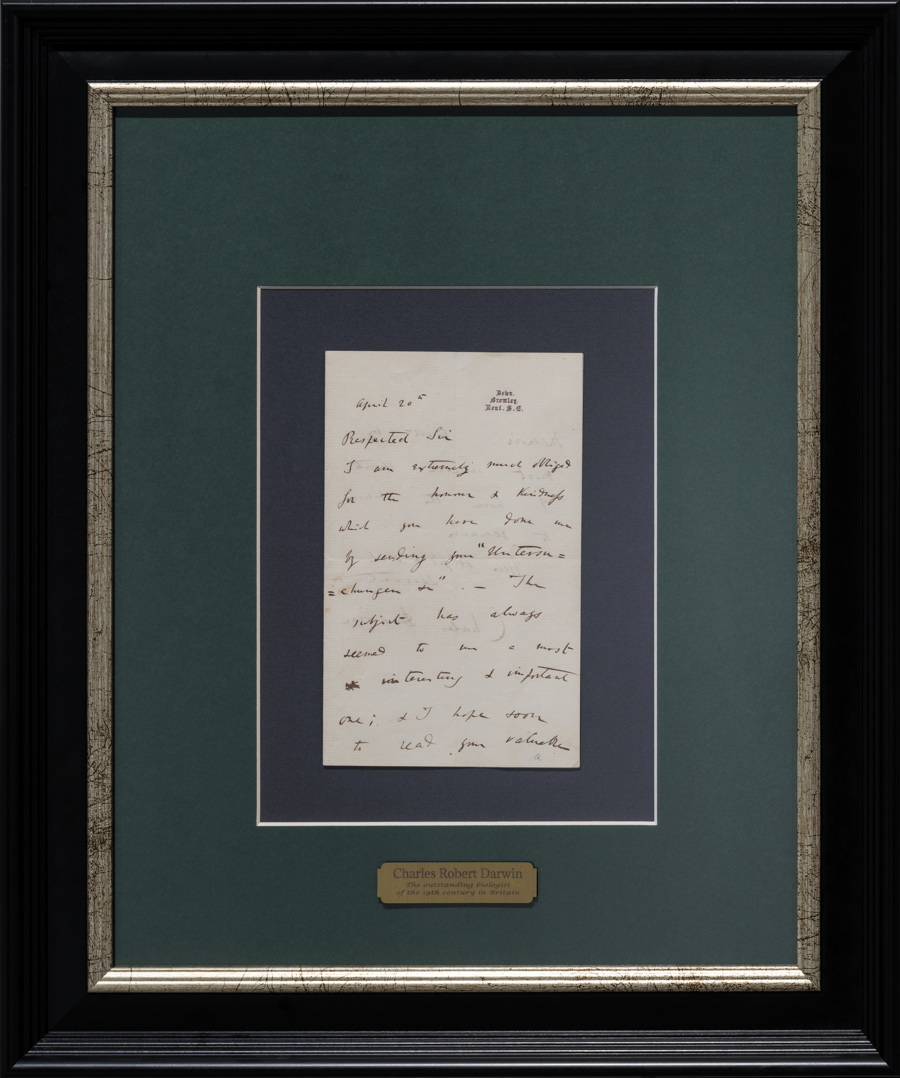 April 20th
Down,
Bromley,
Kent. S.E.
Respected Sir
I am extremely much obliged
for the honour & kindness
which you have done me
by sending your "Untersu=
=chungen &c" . — The
subject has always
seemed to me a most
interesting & important
one; & I hope soon
to read your valuable
Charles Robert Darwin
The outstanding biologist
of the 19th century in Britain